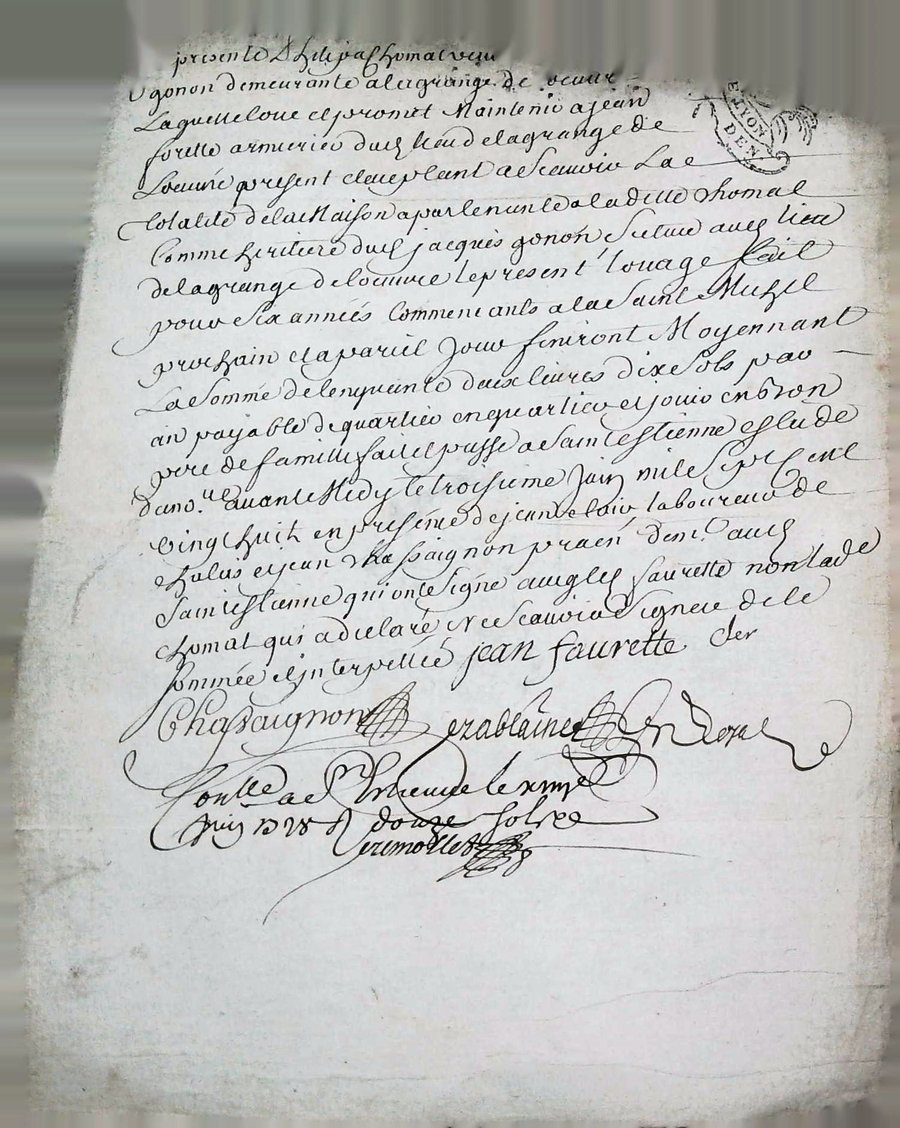 presente
gonon demeurante a la grange de
Laquelle loue et promet Maintenir a jean
forette armurier dud lieu de la grange de
Loeuvre present et aceptant a Scauoir La
totalite de la Maison apartenante a la ditte thomas
Comme heritiere dud jacques gonon Scitue aud lieu
de la grange de loeuvre le present louage fait
pour Six années Commencants a la Saint Michel
prochain et a pareil Jour finiront Moyennant
La Somme de cinquante deux livres dix Sols par
an payable de quartier en quartier et jouir en bon
pere de famille fait et passé a Saint Estienne estude
du no.re avant Midy le troisieme Juin mil Sept Cent
vingt huit en presence de jean laboureur de
et jean Chassaignon pratn demt aud
Saint Estienne qui ont Signé avec led faurette non lade
thomas qui a declaré ne Scauoir Signer de ce
Sommée et interpellée jean faurette
Chassaignon
Conlle a St Estienne le
Juin 1728 R douze Sols